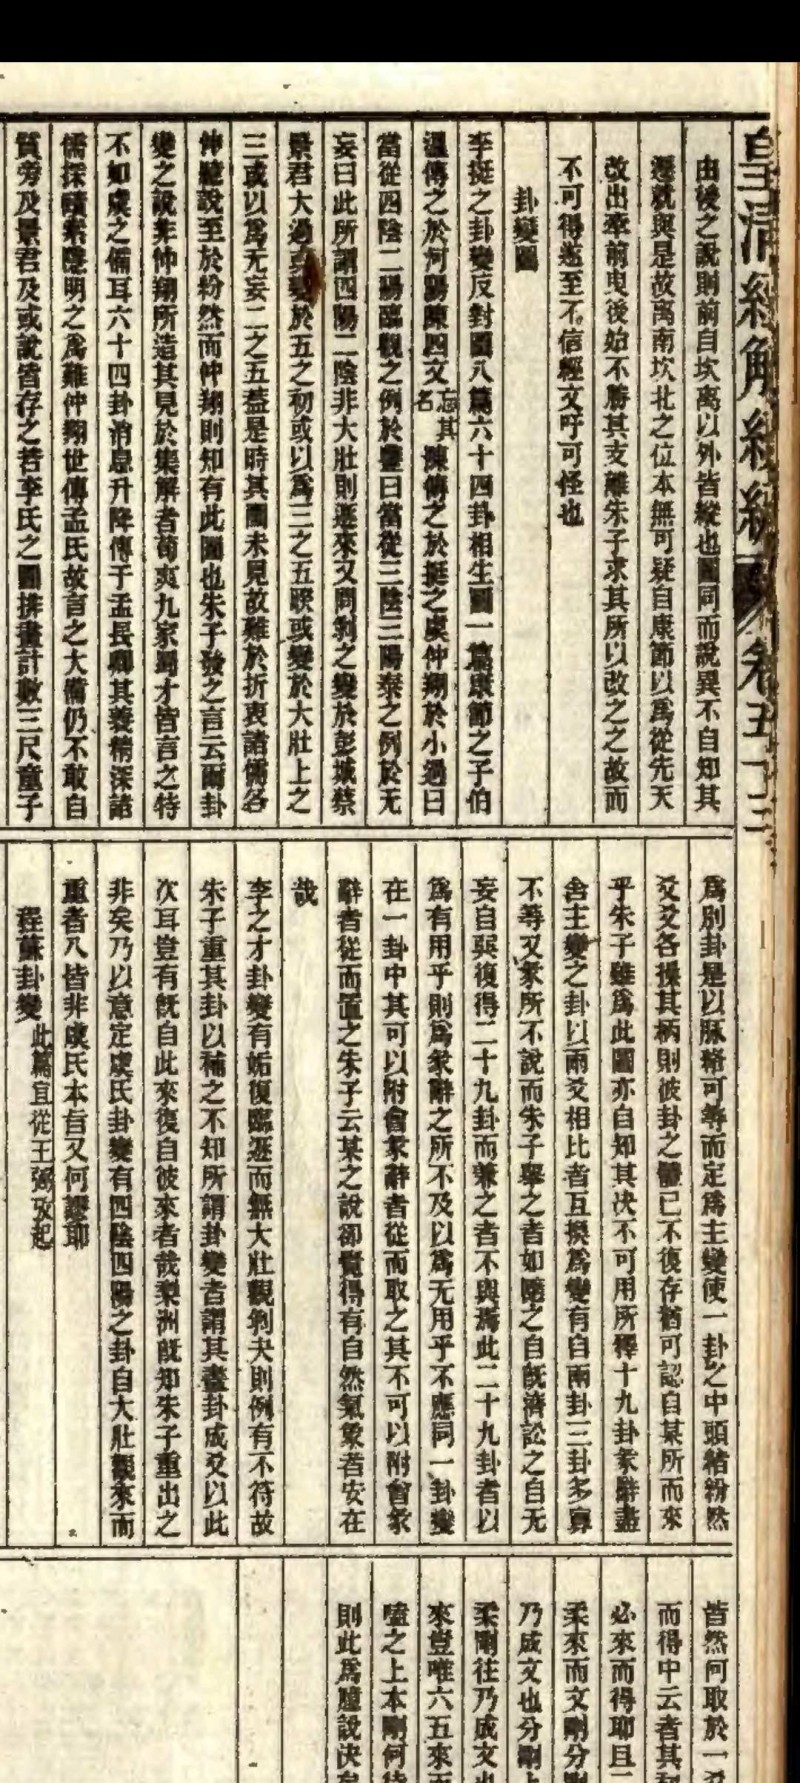 皇清經解續編 卷五十三
由後之說則前自坎离以外皆縱也圖同而說異不自知其
遷就與是故离南坎北之位本無可疑自康節以爲從先天
改出牽前曳後始不勝其支離朱子求其所以改之之故而
不可得遂至不信經文吁可怪也
卦變圖
李挺之卦變反對圖八篇六十四卦相生圖一篇康節之子伯
溫傳之於河陽陳四丈忘其名陳傳之於挺之虞仲翔於小過曰
當從四陰二陽臨觀之例於豐曰當從三陰三陽泰之例於无
妄曰此所謂四陽二陰非大壯則遯來又問剝之變於彭城蔡
景君大過或變於五之初或以爲三之五睽或變於大壯上之
三或以爲无妄二之五葢是時其圖未見故難於折衷諸儒各
伸臆說至於紛然而仲翔則知有此圖也朱子發之言云爾卦
變之說非仲翔所造其見於集解者荀爽九家蜀才皆言之特
不如虞之備耳六十四卦消息升降傳于孟長卿其義精深諸
儒探賾索隱明之爲難仲翔世傳孟氏故言之大備仍不敢自
質旁及景君及或說皆存之若李氏之圖排畫計數三尺童子
爲別卦是以脈絡可尋而定爲主變使一卦之中頭緒紛然
爻爻各操其柄則彼卦之體已不復存猶可認自某所而來
乎朱子雖爲此圖亦自知其决不可用所釋十九卦彖辭盡
舍主變之卦以兩爻相比者互換爲變有自兩卦三卦多寡
不等又彖所不說而朱子舉之者如隨之自旣濟訟之自无
妄自巽復得二十九卦而兼之者不與焉此二十九卦者以
爲有用乎則爲彖辭之所不及以爲无用乎不應同一卦變
在一卦中其可以附會彖辭者從而取之其不可以附會彖
辭者從而置之朱子云某之說卻覺得有自然氣象者安在
哉
李之才卦變有姤復臨遯而無大壯觀剝夬則例有不符故
朱子重其卦以補之不知所謂卦變者謂其畫卦成爻以此
次耳豈有旣自此來復自彼來者哉梨洲旣知朱子重出之
非矣乃以意定虞氏卦變有四陰四陽之卦自大壯觀來而
重者八皆非虞氏本旨又何謬耶
程蘇卦變此篇宜從王弼攷起
皆然何取於一爻
而得中云者其
必來而得耶且
柔來而文剛分剛
乃成文也分剛上
柔剛往乃成文也
來豈唯六五來
嗑之上本剛何待
則此爲臆說决矣